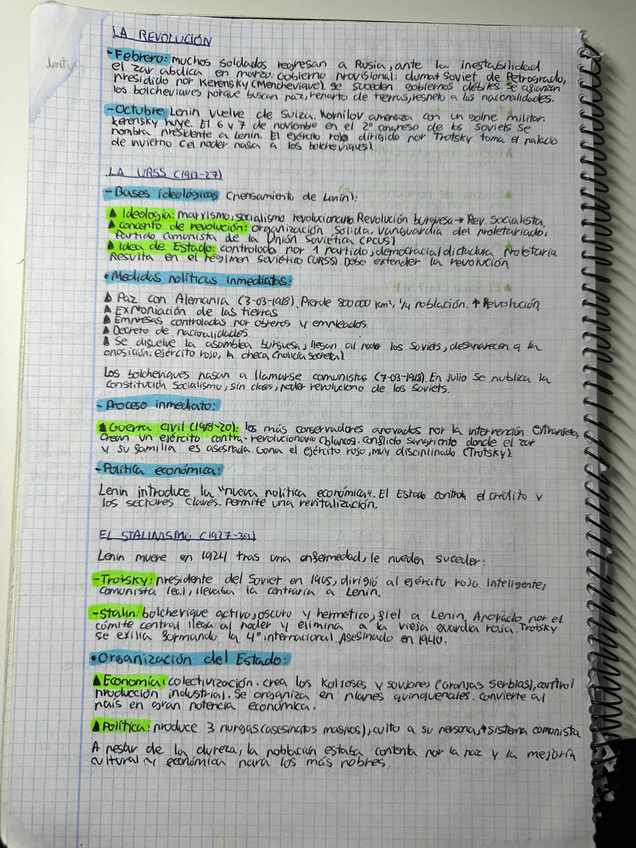 LA REVOLUCIÓN
- Febrero: muchos soldados regresan a Rusia, ante la inestabilidad
el zar abdica en marzo. Gobierno provisional: duma + Soviet de Petrogrado,
presidido por Kerensky (Menchevique). Se suceden gobiernos débiles. Se afianzan
los bolcheviques porque buscan paz, reparto de tierras, respeto a las nacionalidades.
- Octubre Lenin vuelve de Suiza. Kornilov amenaza con un golpe militar.
Kerensky huye. El 6 y 7 de noviembre en el 2º congreso de los Soviets se
nombra presidente a Lenin. El ejército rojo dirigido por Trotsky toma el palacio
de invierno (el poder pasa a los bolcheviques)
LA URSS (1917-27)
- Bases ideológicas (pensamiento de Lenin):
Ideología: marxismo, socialismo revolucionario Revolución burguesa → Rev. Socialista
concepto de revolución: organización sólida. Vanguardia del proletariado,
Partido comunista de la Unión Soviética (PCUS)
Idea de Estado: controlado por 1 partido, democracia/dictadura proletaria
Resulta en el régimen soviético (URSS). Debe extender la revolución
• Medidas políticas inmediatas:
Paz con Alemania (3-03-1918). Pierde 800000 km², 1/4 población. ↑ Revolución
Expropiación de las tierras
Empresas controladas por obreros y empleados
Decreto de nacionalidades
Se disuelve la asamblea burguesa, llegan al poder los Soviets, desaparecen a la
oposición: ejército rojo, la checa (policía secreta)
Los bolcheviques pasan a llamarse comunistas (7-03-1918). En julio se publica la
Constitución Socialismo, sin clases, poder revoluciono de los Soviets.
- Proceso inmediato:
Guerra civil (1918-20): los más conservadores apoyados por la intervención extranjera
crean un ejército contra-revolucionario (blancos). Conflicto sangriento donde el zar
y su familia es asesinada. Gana el ejército rojo, muy disciplinado (Trotsky).
- Política económica:
Lenin introduce la "nueva política económica". El Estado control el crédito y
los sectores claves. Permite una revitalización.
EL STALINISMO (1927-39)
Lenin muere en 1924 tras una enfermedad, le pueden suceder:
- Trotsky: presidente del Soviet en 1905, dirigió al ejército rojo. Inteligente,
comunista leal, llevaba la contraria a Lenin.
- Stalin: bolchevique activo, oscuro y hermético, fiel a Lenin. Apoyado por el
comité central llega al poder y elimina a la vieja guardia roja. Trotsky
se exilia formando la 4º internacional. Asesinado en 1940.
• Organización del Estado:
Economía: colectivización. crea los koljoses y sovjoses (granjas serbias), control
producción industrial. Se organiza en planes quinquenales. Convierte al
país en gran potencia económica.
Política: produce 3 purgas (asesinatos masivos), culto a su persona, ↑ sistema comunista
A pesar de la dureza, la población estaba contenta por la paz y la mejoría
cultural y económica para los más pobres.